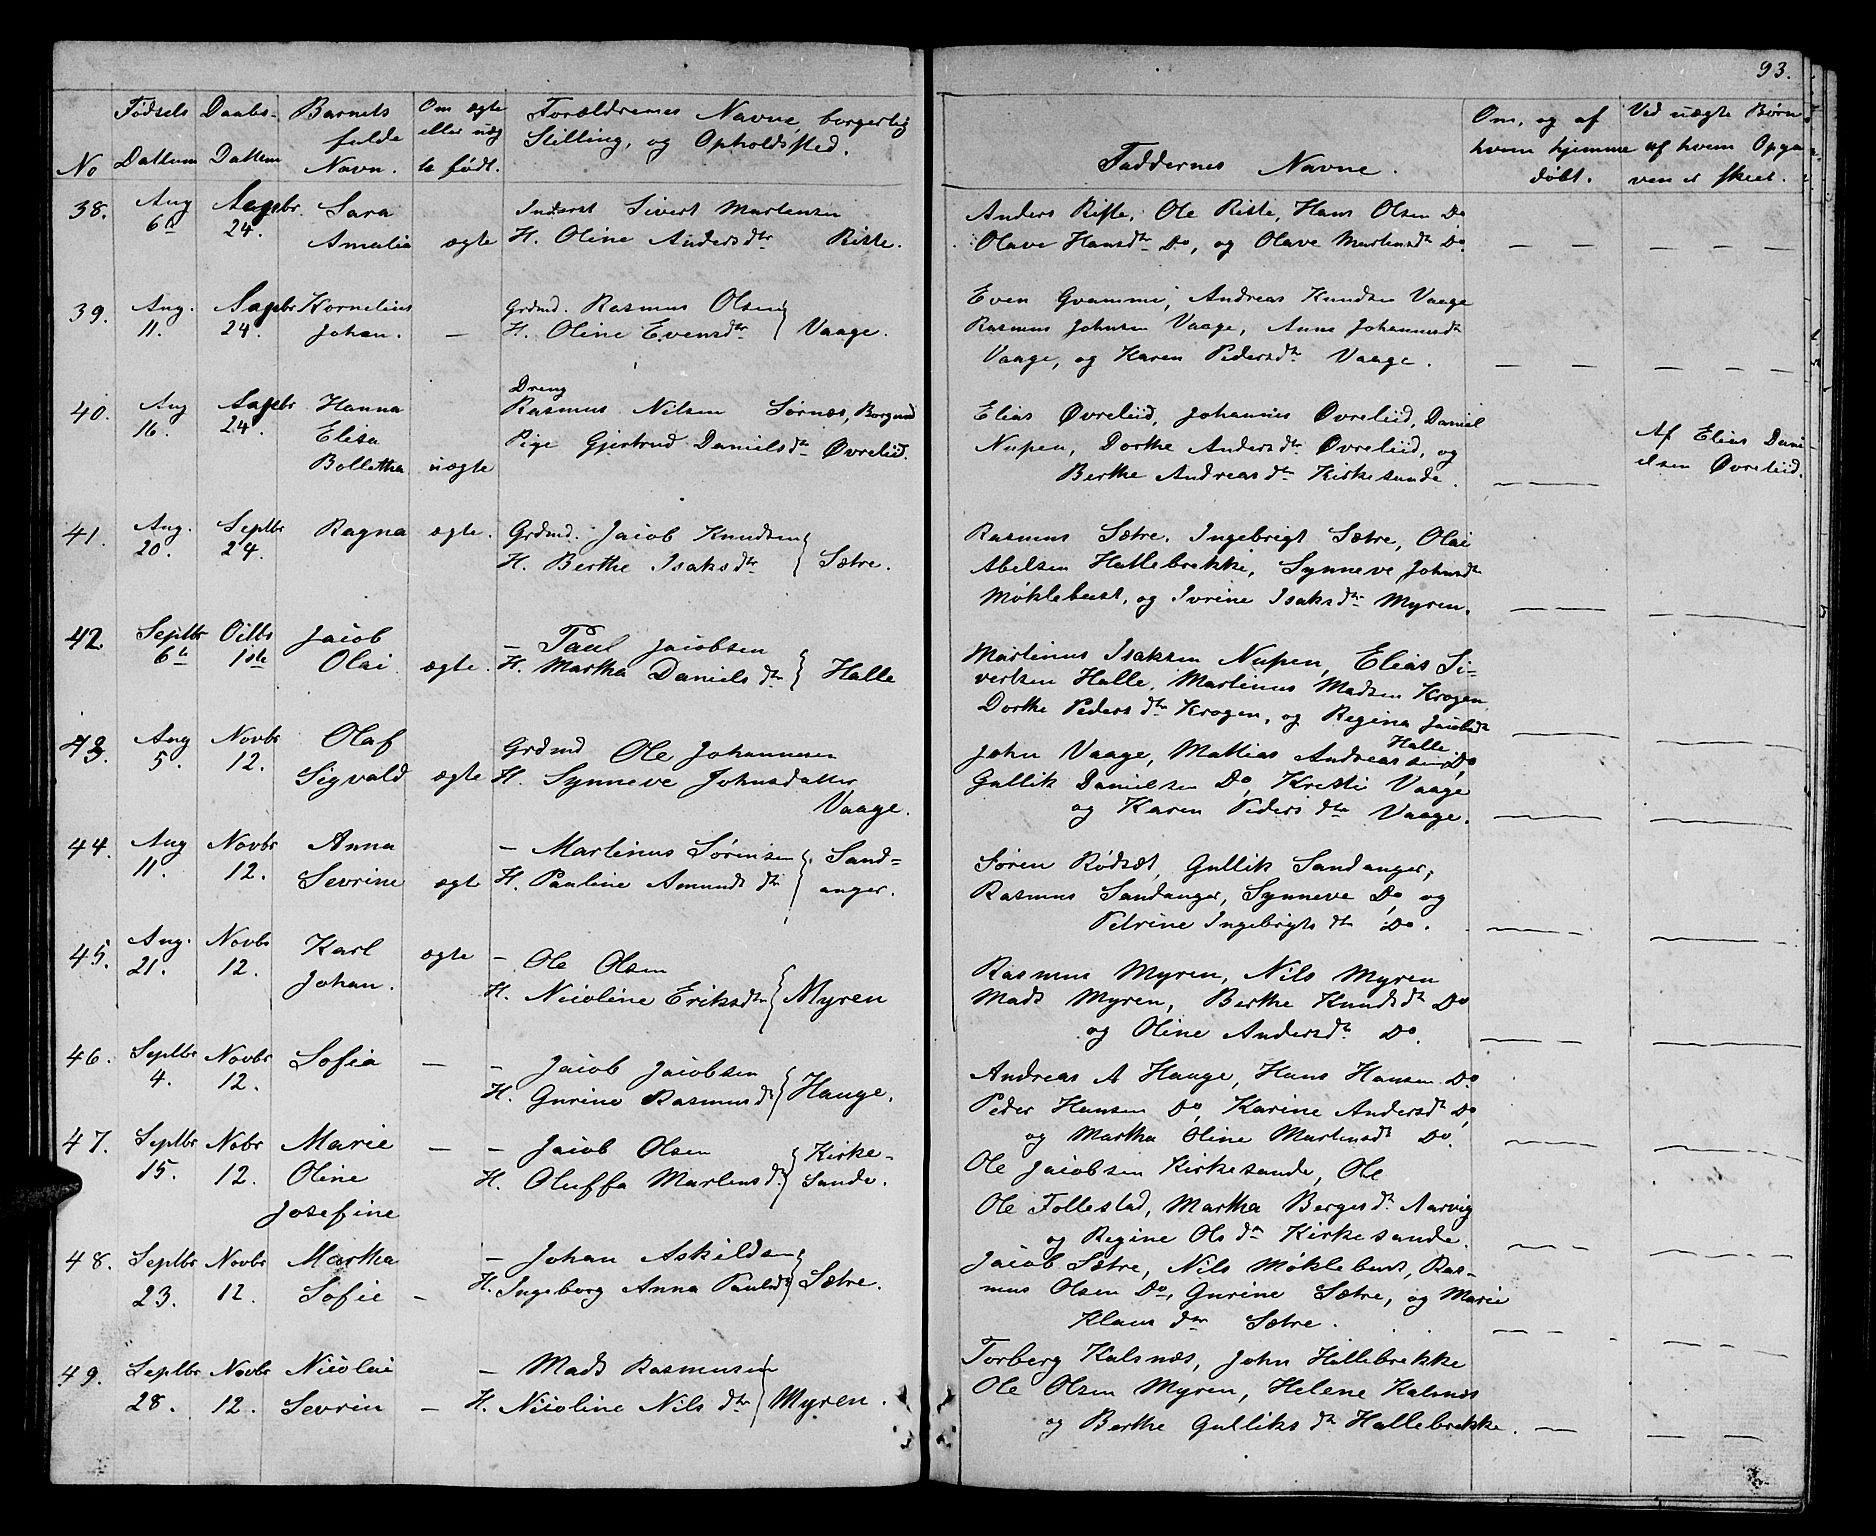 93.
No
Fødsels Dattum
Daabs- Dattum
Barnets fulde Navn.
Om ægte eller uægte født.
Forældrenes Navne, borgerlig Stilling, og Opholdssted.
Faddernes Navne.
Om, og af hvem hjemmedøbt.
Ved uægte Børn af hvem Opgaven er skeet.
38. Aug Septbr. Sara Inderst Sivert Martensen
6te 24. Amalia ægte H. Oline Andersdtr Riste.
Anders Riste, Ole Riste, Hans Olsen Do
Olave Hansdtr Do, og Olave Martensdtr Do.
39. Aug. Septbr Kornelius Grdmd. Rasmus Olsen
11. 24. Johan. — H. Oline Evensdtr } Vaage.
Even Gvamme, Andreas Knudsen Vaage
Rasmus Johnsen Vaage, Anne Johannesdtr
Vaage, og Karen Pedersdtr Vaage.
40. Aug Septbr Hanna Dreng
16. 24. Elisa Rasmus Nilsen Sørnæs, Borgund
Bollettha uægte Pige Gjertrud Danielsdtr Øvreliid.
Elias Øvreliid, Johannes Øvreliid, Daniel
Nupen, Dorthe Andersdtr Øvreliid, og
Berthe Andreasdtr Kirkesande.
Af Elias Dani-
elsen Øvreliid.
41. Aug. Septbr Ragna ægte. Grdmd. Jacob Knudsen
20. 24. H. Berthe Isaksdtr } Sætre.
Rasmus Sætre, Ingebrigt Sætre, Olai
Abelsen Hallebrekke, Synneve Johnsdtr
Møklebust, og Ivrine Isaksdtr Myren.
42. Septbr Octbr Jacob — Paul Jacobsen
6te 1ste Olai ægte. H. Martha Danielsdtr } Halle
Martinus Isaksen Nupen, Elias Si-
vertsen Halle, Martinus Madsen Krogen
Dorthe Pedersdtr Krogen, og Regina Jacobsdtr
Halle
43. Aug Novbr Olaf Grdmd Ole Johannesen
5. 12. Sigvald ægte H. Synneve Johnsdatter
Vaage.
John Vaage, Mattias Andreassen Do
Gullik Danielsen Do, Kristi Vaage
og Karen Pedersdtr Vaage.
44. Aug Novbr Anna — Martinus Sørensen
11. 12. Sevrine ægte H. Pauline Amundsdtr } Sand=
anger.
Søren Rødsæt, Gullik Sandanger,
Rasmus Sandanger, Synneve Do, og
Petrine Ingebrigtsdtr Do.
45. Aug. Novbr Karl ægte — Ole Olsen
21. 12. Johan. H. Nicoline Eriksdtr } Myren
Rasmus Myren, Nils Myren
Mads Myren, Berthe Knudsdtr Do
og Oline Andersdtr Do.
46. Septbr Novbr Sofia — — Jacob Jacobsen
4. 12. H. Gurine Rasmusdtr } Hauge.
Andreas A Hauge, Hans Hansen Do
Peder Hansen Do, Karine Andersdtr Do,
og Martha Oline Martensdtr Do.
47. Septbr Nobr Marie — — Jacob Olsen
15. 12. Oline H. Oluffa Martensdtr } Kirke-
Josefine sande.
Ole Jacobsen Kirkesande, Ole
Ole Follestad, Martha Bergesdtr Aarvig
og Regine Olsdtr Kirkesande.
48. Septbr Novbr Martha — Johan Askildsen
23. 12. Sofie — H. Ingeborg Anna Paulsdtr } Sætre.
Jacob Sætre, Nils Møklebust, Ras-
mus Olsen Do, Gurine Sætre, og Marie
Klausdtr Sætre.
49. Septbr Novbr Nicolai — Mads Rasmusen
28. 12. Sevrin — H. Nicoline Nilsdtr } Myren.
Torberg Kalsnæs, John Hallebrekke
Ole Olsen Myren, Helene Kalsnæs
og Berthe Gulliksdtr Hallebrekke.